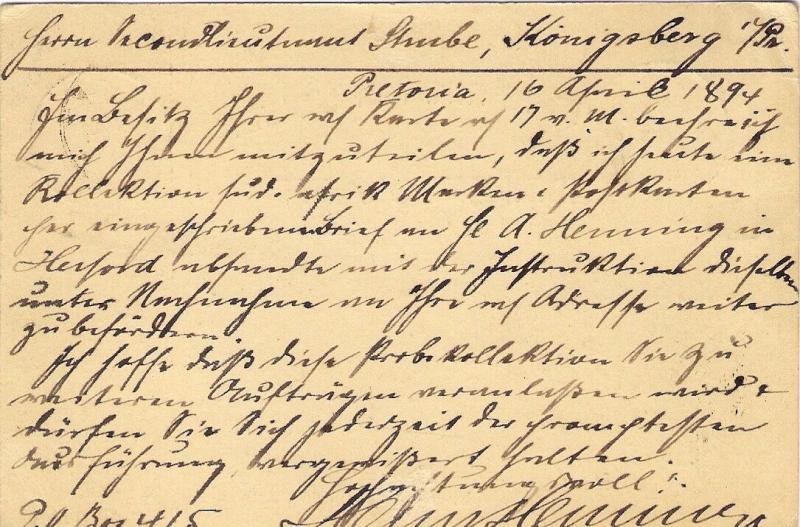 Herrn Secondlieutnant Strube, Königsberg i/Pr.
Pretoria, 16 April 1894
Im Besitz Ihrer w/ Karte v/ 17 v. M. beehre ich
mich Ihnen mitzuteilen, daß ich heute eine
Kollektion süd. afrik Marken & Postkarten
per eingeschriebenen Brief an H. A. Henning in
Herford absandte mit der Instruktion dieselben
unter Nachnahme an Ihre w/ Adresse weiter
zu befördern.
Ich hoffe daß diese Probekollektion Sie zu
weiteren Aufträgen veranlaßen wird &
dürfen Sie Sich jederzeit der promptesten
Ausführung vergewißert halten.
Hochachtungsvoll
P.O Box 415 Henning